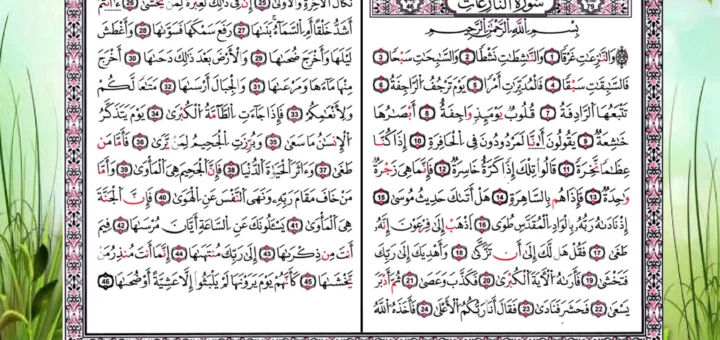 سورة النازعات
بِسْمِ اللَّهِ الرَّحْمَٰنِ الرَّحِيمِ
وَالنَّازِعَاتِ غَرْقًا 1 وَالنَّاشِطَاتِ نَشْطًا 2 وَالسَّابِحَاتِ سَبْحًا 3
فَالسَّابِقَاتِ سَبْقًا 4 فَالْمُدَبِّرَاتِ أَمْرًا 5 يَوْمَ تَرْجُفُ الرَّاجِفَةُ 6
تَتْبَعُهَا الرَّادِفَةُ 7 قُلُوبٌ يَوْمَئِذٍ وَاجِفَةٌ 8 أَبْصَارُهَا
خَاشِعَةٌ 9 يَقُولُونَ أَءِنَّا لَمَرْدُودُونَ فِي الْحَافِرَةِ 10 إِذَا كُنَّا
عِظَامًا نَّخِرَةً 11 قَالُوا تِلْكَ إِذًا كَرَّةٌ خَاسِرَةٌ 12 فَإِنَّمَا هِيَ زَجْرَةٌ
وَاحِدَةٌ 13 فَإِذَا هُم بِالسَّاهِرَةِ 14 هَلْ أَتَاكَ حَدِيثُ مُوسَىٰ 15
إِذْ نَادَاهُ رَبُّهُ بِالْوَادِ الْمُقَدَّسِ طُوًى 16 اذْهَبْ إِلَىٰ فِرْعَوْنَ إِنَّهُ
طَغَىٰ 17 فَقُلْ هَل لَّكَ إِلَىٰ أَن تَزَكَّىٰ 18 وَأَهْدِيَكَ إِلَىٰ رَبِّكَ
فَتَخْشَىٰ 19 فَأَرَاهُ الْآيَةَ الْكُبْرَىٰ 20 فَكَذَّبَ وَعَصَىٰ 21 ثُمَّ أَدْبَرَ
يَسْعَىٰ 22 فَحَشَرَ فَنَادَىٰ 23 فَقَالَ أَنَا رَبُّكُمُ الْأَعْلَىٰ 24 فَأَخَذَهُ اللَّهُ
نَكَالَ الْآخِرَةِ وَالْأُولَىٰ 25 إِنَّ فِي ذَٰلِكَ لَعِبْرَةً لِّمَن يَخْشَىٰ 26 ءَأَنتُمْ
أَشَدُّ خَلْقًا أَمِ السَّمَاءُ بَنَاهَا 27 رَفَعَ سَمْكَهَا فَسَوَّاهَا 28 وَأَغْطَشَ
لَيْلَهَا وَأَخْرَجَ ضُحَاهَا 29 وَالْأَرْضَ بَعْدَ ذَٰلِكَ دَحَاهَا 30 أَخْرَجَ
مِنْهَا مَاءَهَا وَمَرْعَاهَا 31 وَالْجِبَالَ أَرْسَاهَا 32 مَتَاعًا لَّكُمْ
وَلِأَنْعَامِكُمْ 33 فَإِذَا جَاءَتِ الطَّامَّةُ الْكُبْرَىٰ 34 يَوْمَ يَتَذَكَّرُ
الْإِنسَانُ مَا سَعَىٰ 35 وَبُرِّزَتِ الْجَحِيمُ لِمَن يَرَىٰ 36 فَأَمَّا مَن
طَغَىٰ 37 وَءَاثَرَ الْحَيَاةَ الدُّنْيَا 38 فَإِنَّ الْجَحِيمَ هِيَ الْمَأْوَىٰ 39 وَأَمَّا
مَنْ خَافَ مَقَامَ رَبِّهِ وَنَهَى النَّفْسَ عَنِ الْهَوَىٰ 40 فَإِنَّ الْجَنَّةَ
هِيَ الْمَأْوَىٰ 41 يَسْأَلُونَكَ عَنِ السَّاعَةِ أَيَّانَ مُرْسَاهَا 42 فِيمَ
أَنتَ مِن ذِكْرَاهَا 43 إِلَىٰ رَبِّكَ مُنتَهَاهَا 44 إِنَّمَا أَنتَ مُنذِرُ مَن
يَخْشَاهَا 45 كَأَنَّهُمْ يَوْمَ يَرَوْنَهَا لَمْ يَلْبَثُوا إِلَّا عَشِيَّةً أَوْ ضُحَاهَا 46